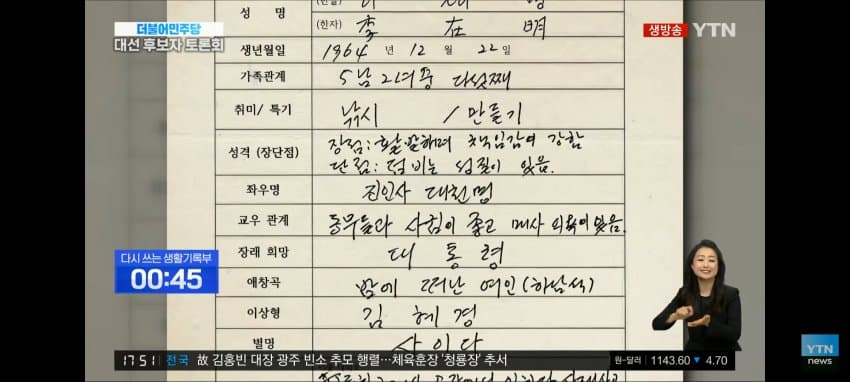 더불어민주당
대선 후보자 토론회
생방송 YTN
성 명
(한자) 李 在 明
생년월일 1964 년 12 월 22 일
가족관계 5남 2녀중 다섯째
취미/ 특기 낚시 / 만들기
성격 (장단점) 장점: 활발하며 책임감이 강함
단점: 덤비는 성질이 있음.
좌우명 진인사 대천명
교우 관계 동무들과 사귐이 좋고 매사 의욕이 있음.
장래 희망 대 통 령
애창곡 밤에 떠난 여인 (하남석)
이상형 김 혜 경
별명 사 이 다
다시 쓰는 생활기록부
00:45
YTN
news
17:51 전국 故 김홍빈 대장 광주 빈소 추모 행렬…체육훈장 '청룡장' 추서 원-달러 1143.60 ▼ 4.70